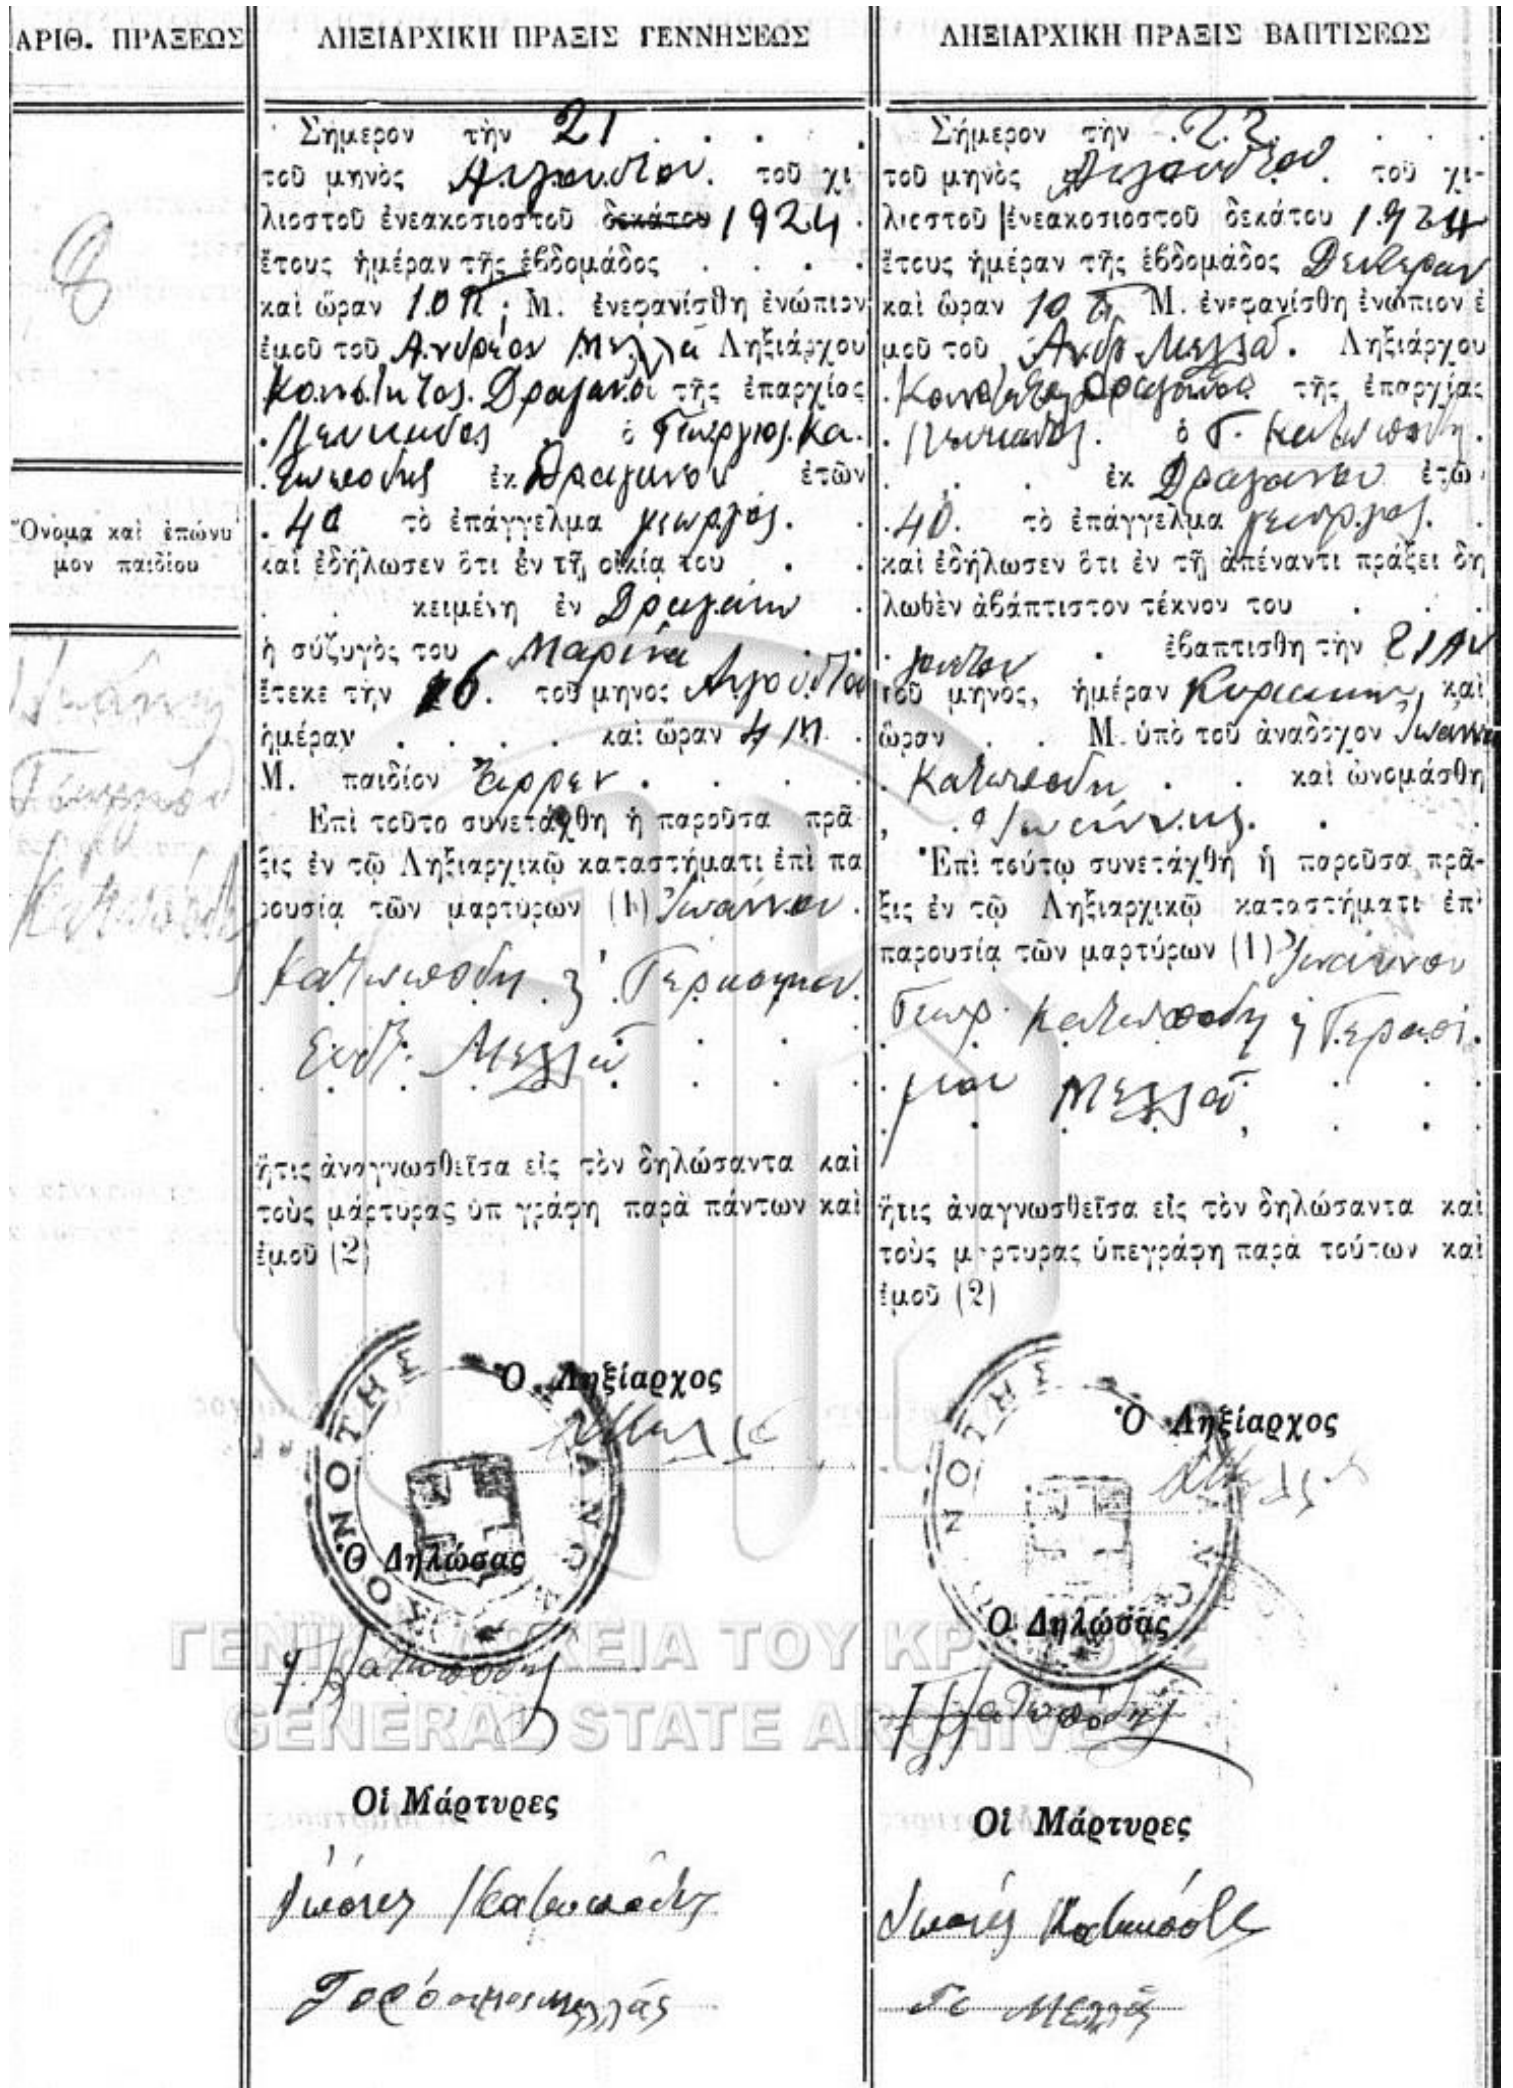 ΑΡΙΘ. ΠΡΑΞΕΩΣ
8
Ὄνομα καὶ ἐπώνυ
μον παιδίου
Ἰωάννης
Γεωργίου
Κατωπόδης
ΛΗΞΙΑΡΧΙΚΗ ΠΡΑΞΙΣ ΓΕΝΝΗΣΕΩΣ
Σήμερον τὴν 21 . . . .
τοῦ μηνὸς Αὐγούστου. τοῦ χι
λιοστοῦ ἐνεακοσιοστοῦ δεκάτου 1924 .
ἔτους ἡμέραν τῆς ἑβδομάδος . . . .
καὶ ὥραν 10 Π. Μ. ἐνεφανίσθη ἐνώπιον
ἐμοῦ τοῦ Ἀνδρέου Μελλᾶ Ληξιάρχου
Κοινότητος Δραγάνου τῆς ἐπαρχίας
Λευκάδος ὁ Γεώργιος Κα.
τωπόδης ἐκ Δραγάνου ἐτῶν
. 40 τὸ ἐπάγγελμα γεωργός. .
καὶ ἐδήλωσεν ὅτι ἐν τῇ οἰκίᾳ του . .
. . κειμένη ἐν Δραγάνῳ .
ἡ σύζυγός του Μαρίνα . .
ἔτεκε τὴν 16. τοῦ μηνος Αὐγούστου
ἡμέραν . . . . καὶ ὥραν 4 Μ.
Μ. παιδίον ἄρρεν . . . .
Ἐπὶ τοῦτο συνετάχθη ἡ παροῦσα πρᾶ
ξις ἐν τῷ Ληξιαρχικῷ καταστήματι ἐπὶ πα
ρουσίᾳ τῶν μαρτύρων (1) Ἰωάννου .
Κατωπόδη ἢ Γερασίμου
Μελλᾶ . . .
ἥτις ἀναγνωσθεῖσα εἰς τὸν δηλώσαντα καὶ
τοὺς μάρτυρας ὑπ γράφη παρὰ πάντων καὶ
ἐμοῦ (2)
Ὁ Ληξίαρχος
Ὁ Δηλώσας
Γ Κατωπόδης
Οἱ Μάρτυρες
Ἰωάνης Κατωπόδης
Γεράσιμος Μελλάς
ΛΗΞΙΑΡΧΙΚΗ ΠΡΑΞΙΣ ΒΑΠΤΙΣΕΩΣ
Σήμερον τὴν .22. . . .
τοῦ μηνὸς Αὐγούστου . τοῦ χι-
λιοστοῦ ἐνεακοσιοστοῦ δεκάτου 1924
ἔτους ἡμέραν τῆς ἑβδομάδος Δευτέραν
καὶ ὥραν 10 Π. Μ. ἐνεφανίσθη ἐνώπιον ἐ
μοῦ τοῦ Ἀνδρ. Μελλᾶ. Ληξιάρχου
Κοινότητος Δραγάνου τῆς ἐπαρχίας
. Λευκάδος. ὁ Γ. Κατωπόδη.
. . . ἐκ Δραγάνου ἐτῶ
. 40. τὸ ἐπάγγελμα γεωργός. .
καὶ ἐδήλωσεν ὅτι ἐν τῇ ἀπέναντι πράξει δη
λωθὲν ἀβάπτιστον τέκνον του . . .
. . ἐβαπτισθη τὴν 21 Αὐ
γούστου
τοῦ μηνός, ἡμέραν Κυριακήν, καὶ
ὥραν . . Μ. ὑπὸ τοῦ ἀναδόχον Ἰωάννου
. Κατωπόδη . . καὶ ὠνομάσθη
. Ἰωάννης. . .
Ἐπὶ τούτῳ συνετάχθη ἡ παροῦσα πρᾶ-
ξις ἐν τῷ Ληξιαρχικῷ καταστήματι ἐπὶ
παρουσίᾳ τῶν μαρτύρων (1) Ἰωάννου
Γεωρ. Κατωπόδη ἢ Γερασί
μου Μελλᾶ . . .
ἥτις ἀναγνωσθεῖσα εἰς τὸν δηλώσαντα καὶ
τοὺς μαρτυρας ὑπεγράφη παρὰ τούτων καὶ
ἐμοῦ (2)
Ὁ Ληξίαρχος
Ὁ Δηλώσας
Γ Κατωπόδης
Οἱ Μάρτυρες
Ἰωάνης Κατωπόδης
Γε Μελλάς
ΓΕΝΙΚΑ ΑΡΧΕΙΑ ΤΟΥ ΚΡΑΤΟΥΣ
GENERAL STATE ARCHIVES